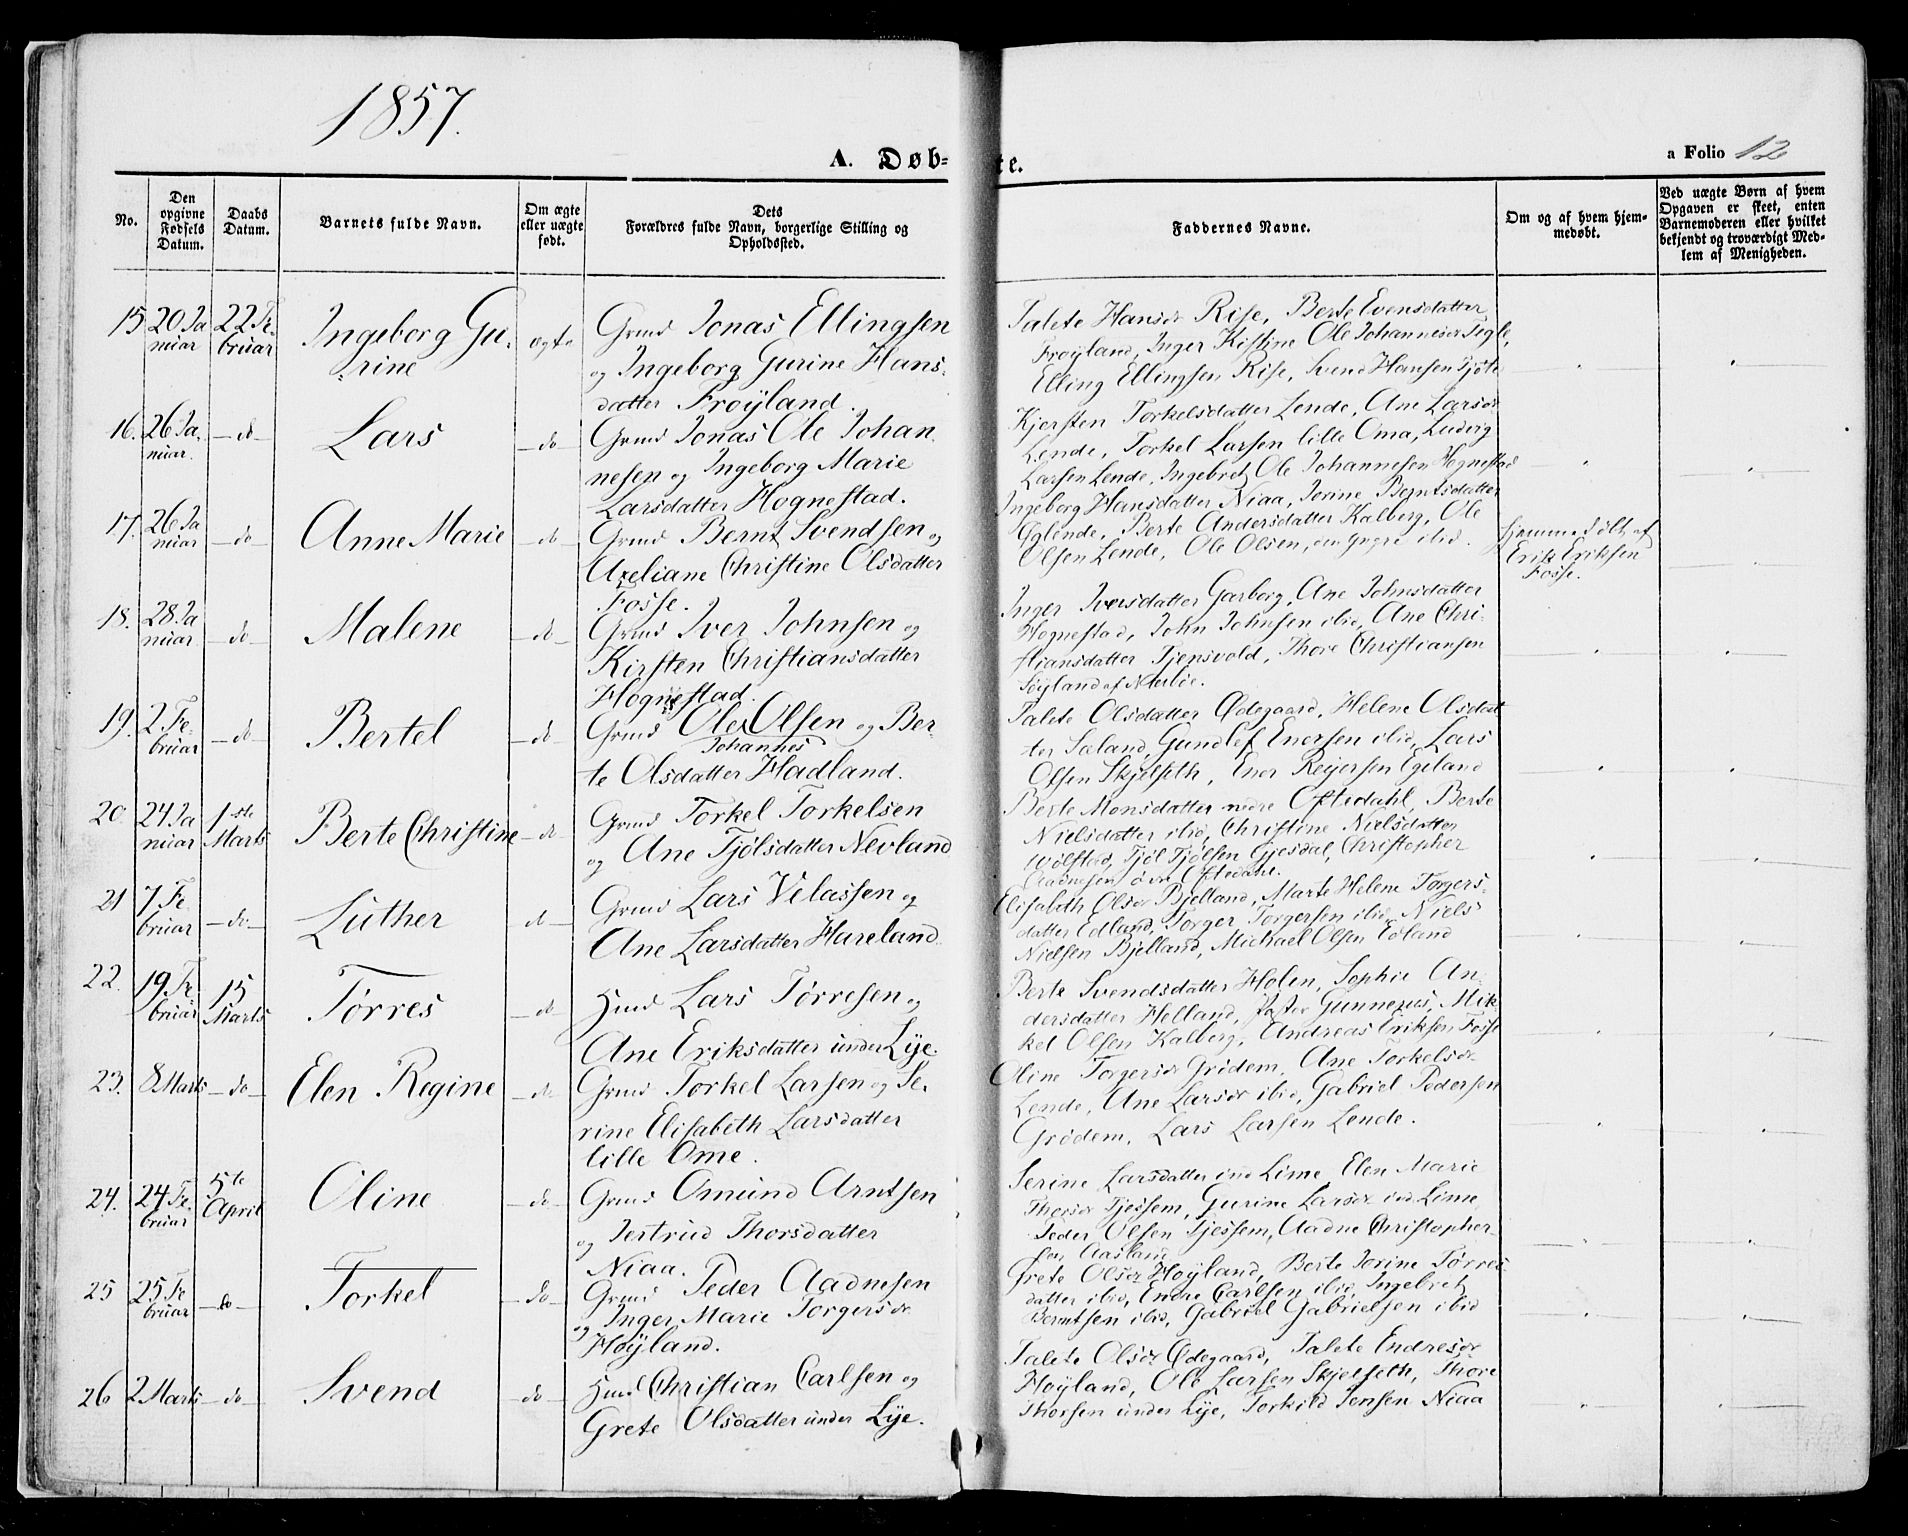 1857.
A. Døb-
te.
a Folio 12
No.
Den opgivne Fødsels Datum.
Daabs Datum.
Barnets fulde Navn.
Om ægte eller uægte født.
Dets Forældres fulde Navn, borgerlige Stilling og Opholdssted.
Faddernes Navne.
Om og af hvem hjem-
medøbt.
Ved uægte Børn af hvem
Opgaven er skeet, enten
Barnemoderen eller hvilket
bekjendt og troværdigt Med-
lem af Menigheden.
15 20 Ja 22 Fe
nuar bruar
Ingeborg Gu-
rine
ægte
Grmd Jonas Ellingsen
og Ingeborg Gurine Hans-
datter Frøyland.
Talete Hansdr Rise, Berte Evensdatter
Frøyland, Inger Kistine Ole Johannesdr Tegle,
Elling Ellingsen Rise, Svend Hansen Tjøte
16. 26 Ja
nuar
do
Lars
do
Grmd Jonas Ole Johan
nesen og Ingeborg Marie
Larsdatter Hognestad.
Kjersten Torkelsdatter Lende, Ane Larsdr
Lende, Torkel Larsen lille Oma, Ludvig
Larsen Lende, Ingebret Ole Johannesen Hognestad
17. 26 Ja
nuar
do
Anne Marie
do
Grmd Bernt Svendsen og
Axeliane Christine Olsdatter
Fosse.
Ingeborg Hansdatter Niaa, Jorine Berntsdatter
Eglende, Berte Andersdatter Kalberg, Ole
Olsen Lende, Ole Olsen, den yngre ibid.
Hjemmedøbt af
Erik Eriksen
Fosse.
18. 28 Ja
nuar
do
Malene
do
Grmd Iver Johnsen og
Kirsten Christiansdatter
Hognestad.
Inger Iversdatter Garborg, Ane Johnsdatter
Hognestad, John Johnsen ibid, Ane Chri-
stiansdatter Tjensvold, Thore Christiansen
Søyland af Nærbøe.
19. 2 Fe-
bruar
do
Bertel
do
Grmd Ole Olsen og Ber-
Johannes
te Olsdatter Hadland.
Talete Olsdatter Ødegaard, Helene Olsdat
ter Sæland, Gundlef Enersen ibid, Lars
Olsen Skjelseth, Ener Reijersen Egeland
20 24 Ja 1ste
nuar Marts
Berte Christine
do
Grmd Torkel Torkelsen
og Ane Tjølsdatter Nevland
Berte Monsdatter nedre Oftedahl, Berte
Nielsdatter ibid, Christine Nielsdatter
Wølstad, Tjøl Tjølsen Gjesdal, Christopher
Aadnesen øvre Oftedahl.
21 7 Fe
bruar
do
Luther
do
Grmd Lars Velassen og
Ane Larsdatter Hareland
Elisabeth Olsdr Bjelland, Marte Helene Torgers-
datter Edland, Torger Torgersen ibid, Niels
Nielsen Bjelland, Michael Olsen Edland
22. 19 Fe 15
bruar Marts
Tørres
do
Huud Lars Tørresen og
Ane Eriksdatter under Lye.
Berte Svendsdatter Holen, Sophie An-
dersdatter Helland, Peder Gunnerus, Mik-
kel Olsen Kalberg, Andreas Eriksen Fosse
23. 8 Marts
do
Elen Regine
do
Grmd Torkel Larsen og Se-
rine Elisabeth Larsdatter
lille Ome.
Oline Torgersdr Grødem, Ane Torkelsdr
Lende, Ane Larsdr ibid, Gabriel Pedersen
Grødem, Lars Larsen Lende.
24. 24 Fe 5te
bruar April
Oline
do
Grmd Omund Arntsen
og Jertrud Thorsdatter
Niaa.
Serine Larsdatter ind Lime, Elen Marie
Thorsdr Tjessem, Gurine Larsdr ind Lime
Peder Olsen Tjessem, Aadne Christopher-
sen Aasland
25 25 Fe
bruar
do
Torkel
do
Grmd Peder Aadnesen
og Inger Marie Torgersdr
Høyland.
Grete Olsdr Høyland, Berte Jorine Tørres
datter ibid, Endre Carlsen ibid, Ingebret
Berntsen ibid, Gabriel Gabrielsen ibid
26 2 Marts
do
Svend
do
Huud Christian Carlsen og
Grete Olsdatter under Lye.
Talete Olsdr Ødegaard, Talete Endresdr
Høyland, Ole Larsen Skjelseth, Thore
Thorsen under Lye, Torkild Jensen Niaa